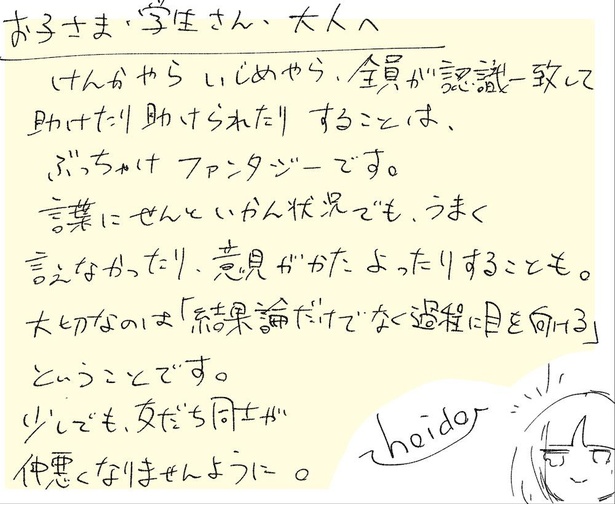 お子さま・学生さん・大人へ
けんかやら いじめやら、全員が認識一致して
助けたり助けられたり することは、
ぶっちゃけ ファンタジーです。
言葉にせんといかん状況でも、うまく
言えなかったり、意見がかたよったりすることも。
大切なのは「結果論だけでなく過程に目を向ける」
ということです。
少しでも、友だち同士が
仲悪くなりませんように。